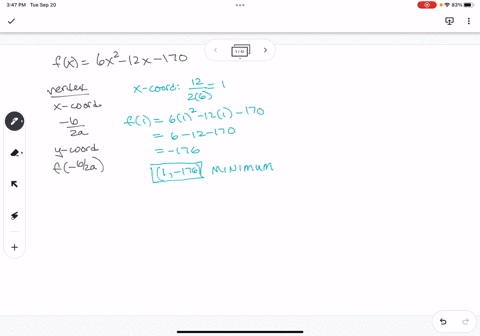 3:47 PM Tue Sep 20
83%
1/12
f(x) = 6x² - 12x - 170
vertex
x-coord
-b/2a
y-coord
f(-b/2a)
x-coord: 12/2(6) = 1
f(1) = 6(1)² - 12(1) - 170
= 6 - 12 - 170
= -176
(1, -176) MINIMUM